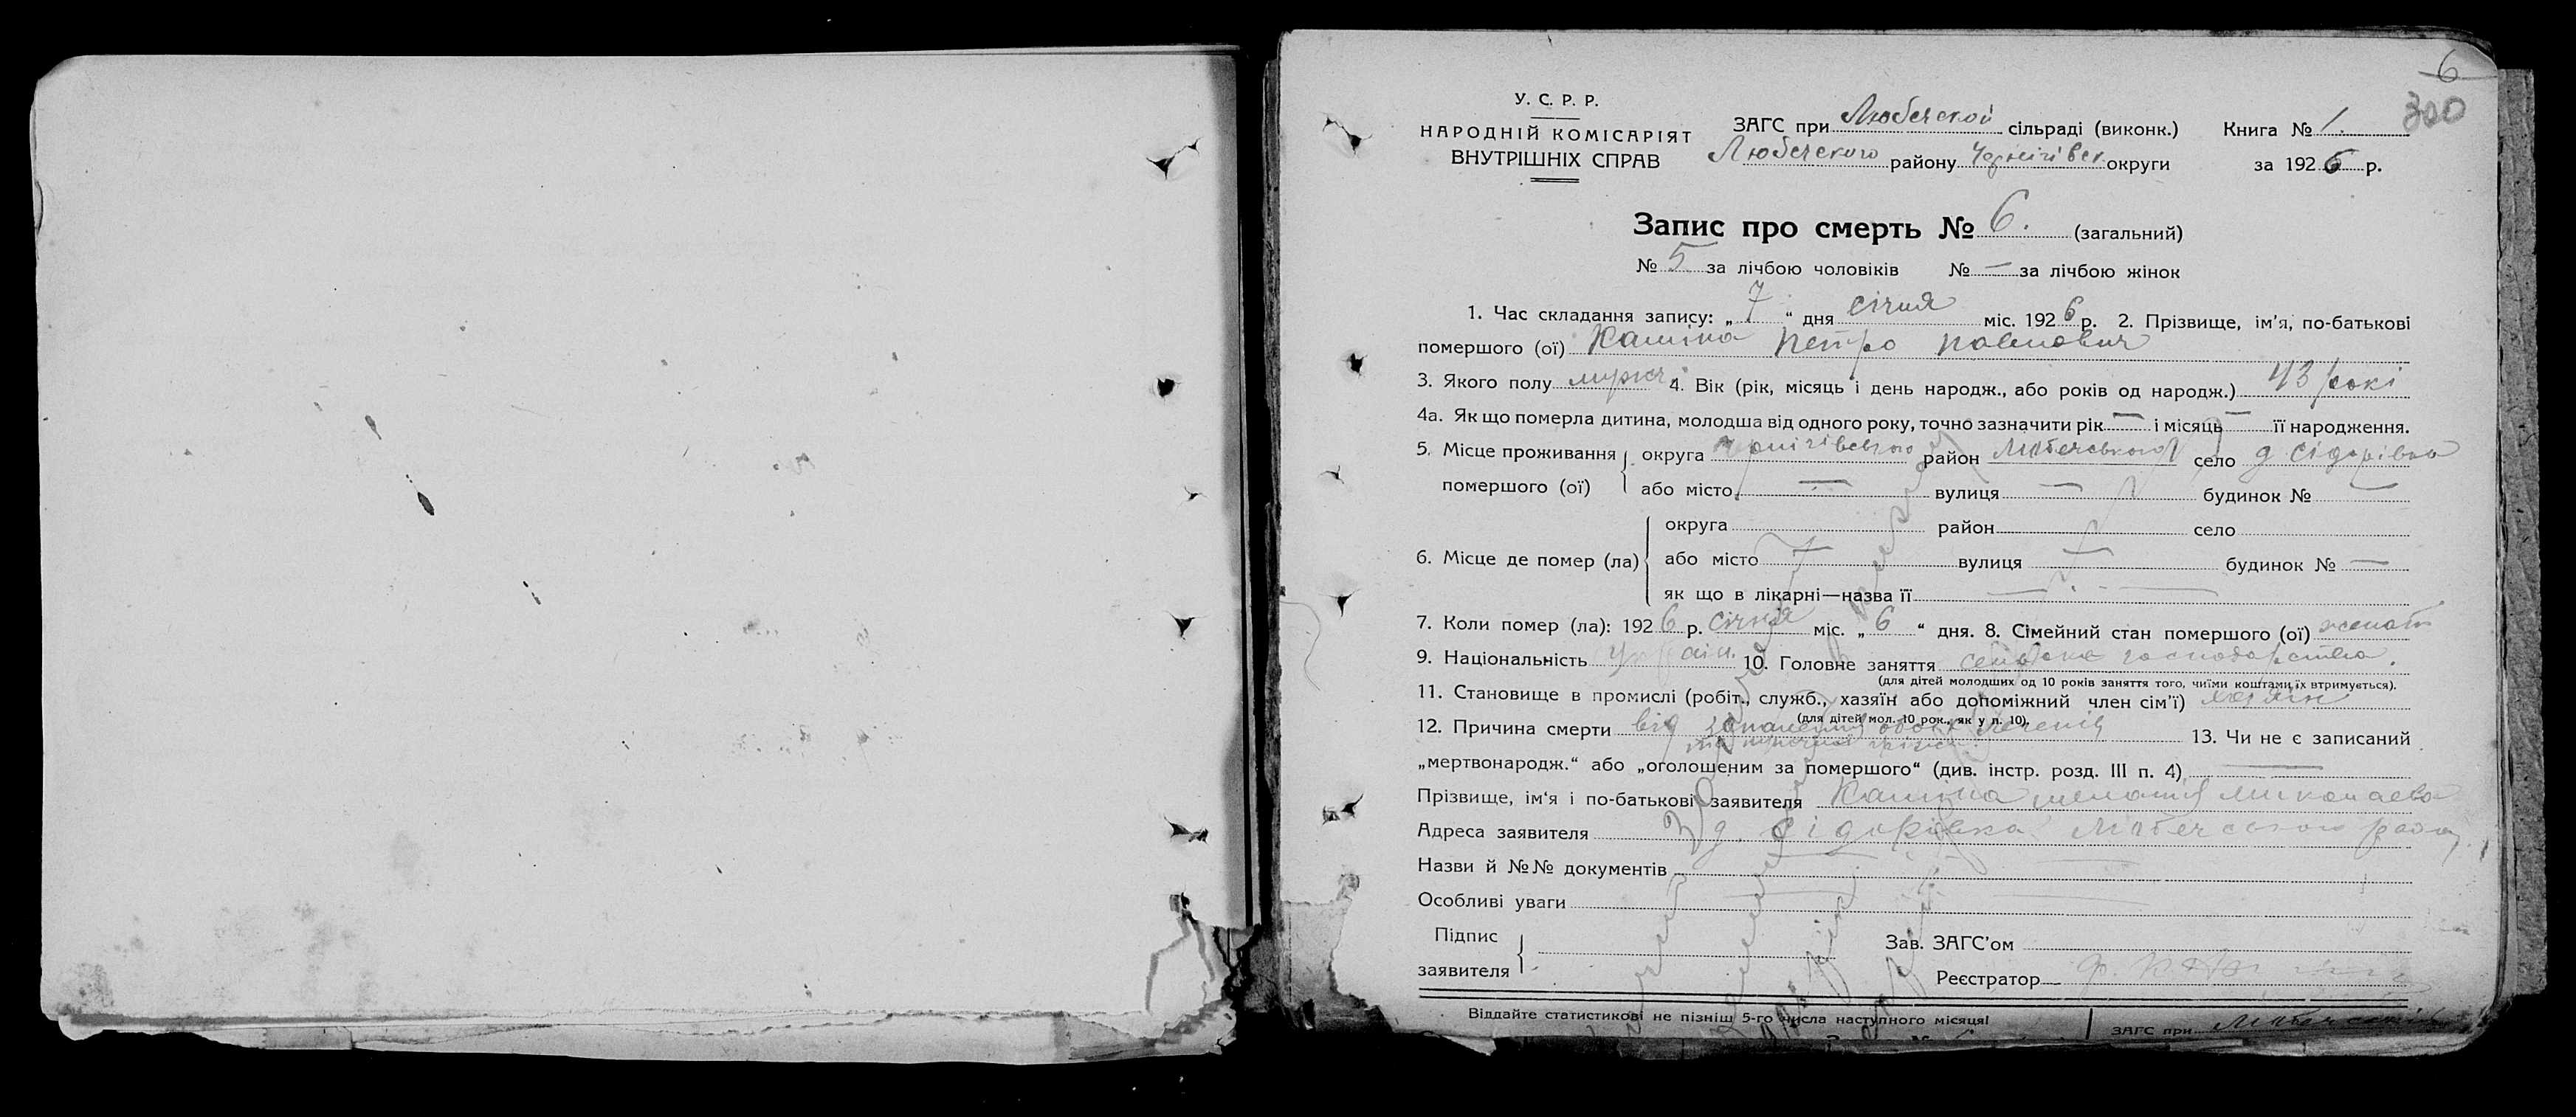 6
300
У. С. Р. Р.
НАРОДНІЙ КОМІСАРІЯТ
ВНУТРІШНІХ СПРАВ
ЗАГС при Любечской сільраді (виконк.) Книга № 1.
Любечского району Чернігівск округи за 1926 р.
Запис про смерть № 6. (загальний)
№ 5 за лічбою чоловіків № — за лічбою жінок
1. Час складання запису: „7“ дня січня міс. 1926 р. 2. Прізвище, ім'я, по-батькові
помершого (ої) Петро Павлович
3. Якого полу мужч. 4. Вік (рік, місяць і день народж., або років од народж.) 43 рокі
4а. Як що померла дитина, молодша від одного року, точно зазначити рік — і місяць — її народження.
5. Місце проживання округа Чернігівського район Любечського село д Сідорівка
помершого (ої) або місто — вулиця — будинок № —
округа район село
6. Місце де помер (ла) або місто — вулиця — будинок № —
як що в лікарні—назва її —
7. Коли помер (ла): 1926 р. січня міс. „6“ дня. 8. Сімейний стан помершого (ої) женат
9. Національність Украін. 10. Головне заняття сельске господарство.
(для дітей молодших од 10 років заняття того, чиїми коштами їх втримується).
11. Становище в промислі (робіт., служб., хазяїн або допоміжний член сім'ї) хазяін
(для дітей мол. 10 рок., як у п. 10).
12. Причина смерти від 13. Чи не є записаний
„мертвонародж.“ або „оголошеним за помершого“ (див. інстр. розд. III п. 4) —
Прізвище, ім'я і по-батькові заявителя
Адреса заявителя д. Сідоровка Любечського району
Назви й №№ документів —
Особливі уваги —
Підпис
заявителя
Зав. ЗАГС'ом
Реєстратор
Віддайте статистикові не пізніш 5-го числа наступного місяця!
ЗАГС при